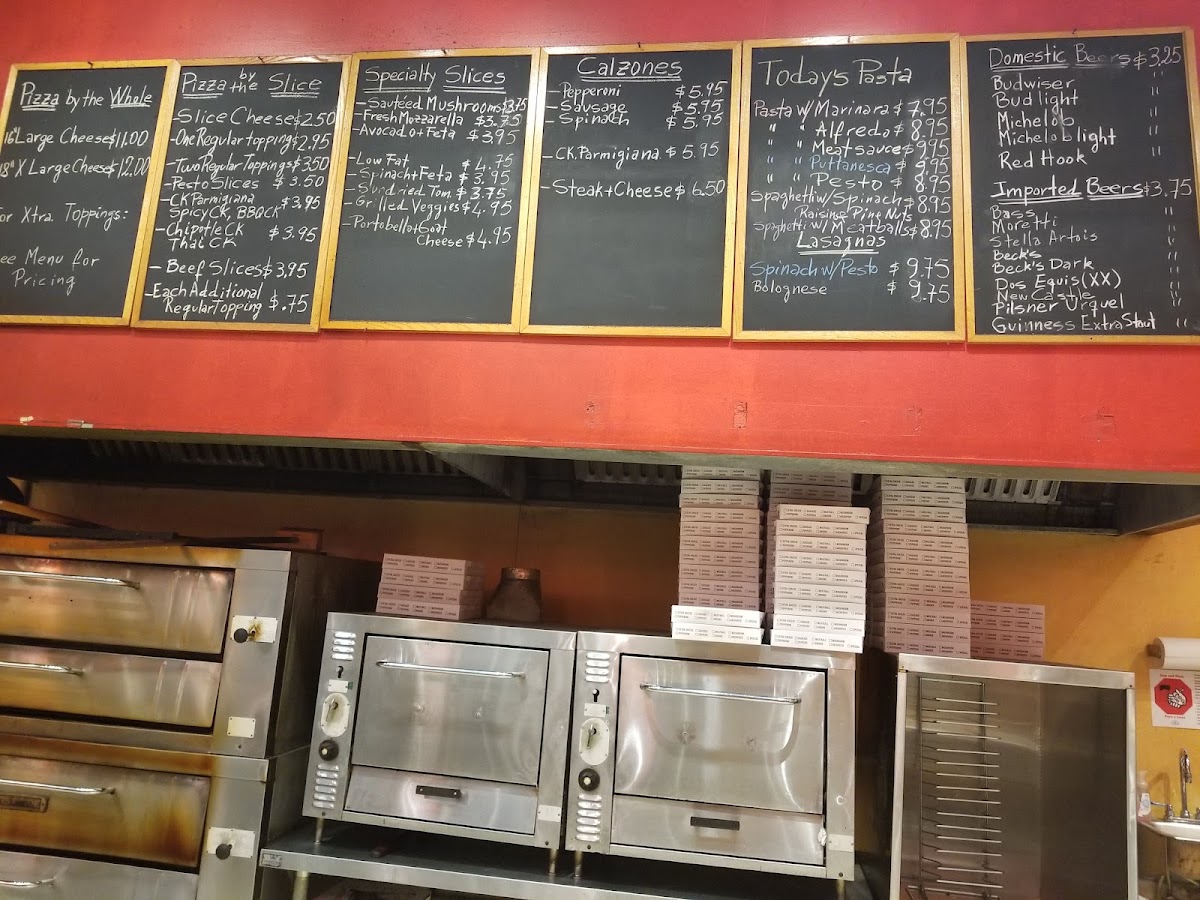 Pizza by the Whole
16" Large Cheese $11.00
18" X Large Cheese $12.00
For Xtra. Toppings:
See Menu for
Pricing
Pizza by the Slice
-Slice Cheese $2.50
-One Regular topping $2.95
-Two Regular Toppings $3.50
-Pesto Slices $3.50
-CK Parmigiana $3.95
Spicy CK, BBQ CK
-Chipotle CK $3.95
Thai CK
-Beef Slices $3.95
-Each Additional
Regular Topping $.75
Specialty Slices
-Sautéed Mushrooms $3.75
-Fresh Mozzarella $3.75
-Avocado+Feta $3.95
-Low Fat $4.75
-Spinach+Feta $3.95
-Sundried Tom $3.75
-Grilled Veggies $4.95
-Portobella+Goat
Cheese $4.95
Calzones
-Pepperoni $5.95
-Sausage $5.95
-Spinach $5.95
-CK.Parmigiana $5.95
-Steak+Cheese $6.50
Today's Pasta
Pasta w/Marinara $7.95
" " Alfredo $8.95
" " Meat sauce $9.95
" " Puttanesca $
" " Pesto $8.95
Spaghetti w/Spinach $8.95
Raisins Pine Nuts
Spaghetti w/Meatballs $8.95
Lasagnas
Spinach w/Pesto $9.75
Bolognese $9.75
Domestic Beers $3.25
Budwiser "
Bud light "
Michelob "
Michelob light "
Red Hook "
Imported Beers $3.75
Bass "
Moretti "
Stella Artois "
Beck's "
Beck's Dark "
Dos Equis (XX) "
New Castle "
Pilsner Urquel "
Guinness Extra Stout "